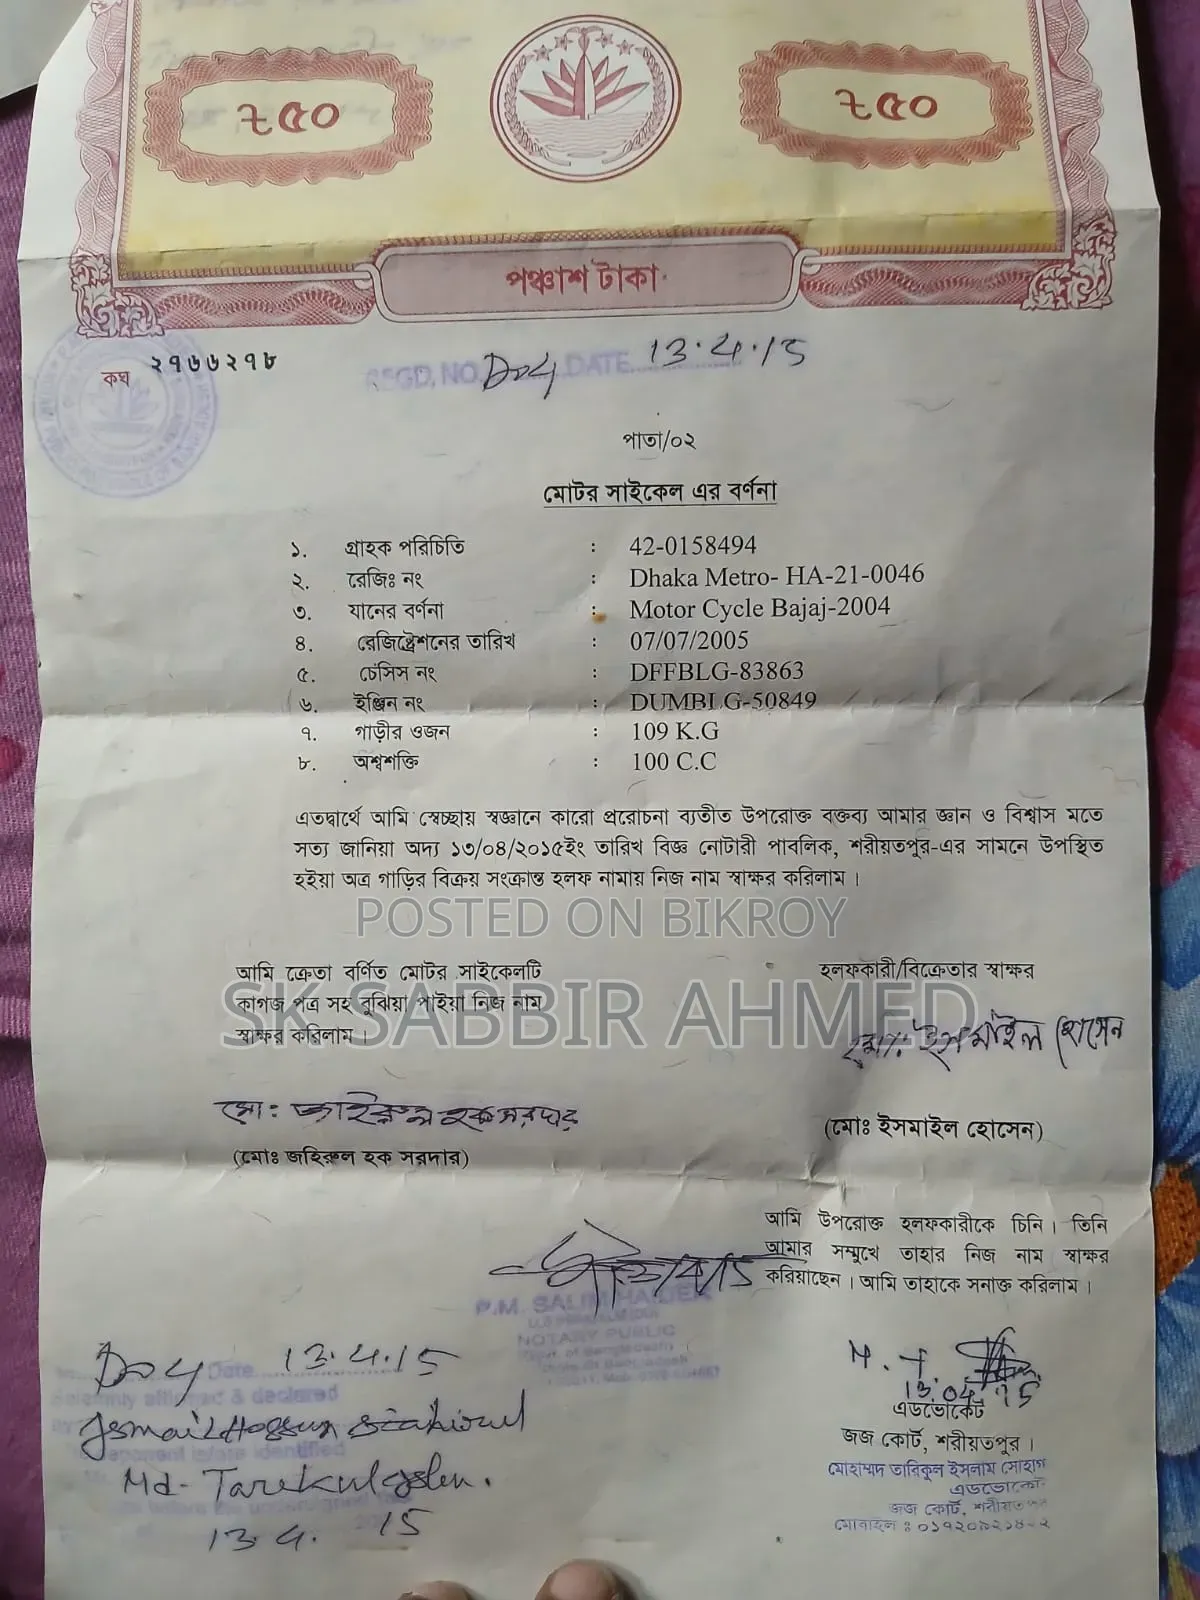 ৳৫০ ৳৫০
পঞ্চাশ টাকা
কঘ ২৭৬৬২৭৮
REGD. NO. DATE 13.4.15
পাতা/০২
মোটর সাইকেল এর বর্ণনা
১. গ্রাহক পরিচিতি : 42-0158494
২. রেজিঃ নং : Dhaka Metro- HA-21-0046
৩. যানের বর্ণনা : Motor Cycle Bajaj-2004
৪. রেজিষ্ট্রেশনের তারিখ : 07/07/2005
৫. চেসিস নং : DFFBLG-83863
৬. ইঞ্জিন নং : DUMBLG-50849
৭. গাড়ীর ওজন : 109 K.G
৮. অশ্বশক্তি : 100 C.C
এতদ্বার্থে আমি স্বেচ্ছায় স্বজ্ঞানে কারো প্ররোচনা ব্যতীত উপরোক্ত বক্তব্য আমার জ্ঞান ও বিশ্বাস মতে
সত্য জানিয়া অদ্য ১৩/০৪/২০১৫ইং তারিখ বিজ্ঞ নোটারী পাবলিক, শরীয়তপুর-এর সামনে উপস্থিত
হইয়া অত্র গাড়ির বিক্রয় সংক্রান্ত হলফ নামায় নিজ নাম স্বাক্ষর করিলাম।
POSTED ON BIKROY
SK SABBIR AHMED
আমি ক্রেতা বর্ণিত মোটর সাইকেলটি
কাগজ পত্র সহ বুঝিয়া পাইয়া নিজ নাম
স্বাক্ষর করিলাম।
মো: জহিরুল হক সরদার
(মোঃ জহিরুল হক সরদার)
হলফকারী/বিক্রেতার স্বাক্ষর
মো: ইসমাইল হোসেন
(মোঃ ইসমাইল হোসেন)
আমি উপরোক্ত হলফকারীকে চিনি। তিনি
আমার সম্মুখে তাহার নিজ নাম স্বাক্ষর
করিয়াছেন। আমি তাহাকে সনাক্ত করিলাম।
P.M. SALIM HAIDER
NOTARY PUBLIC
Date 13.4.15
Solemnly affirmed & declared
Md- Tarekul Islam.
13.4. 15
M. T
13.04.15
এডভোকেট
জজ কোর্ট, শরীয়তপুর।
মোহাম্মদ তারিকুল ইসলাম সোহাগ
জজ কোর্ট,